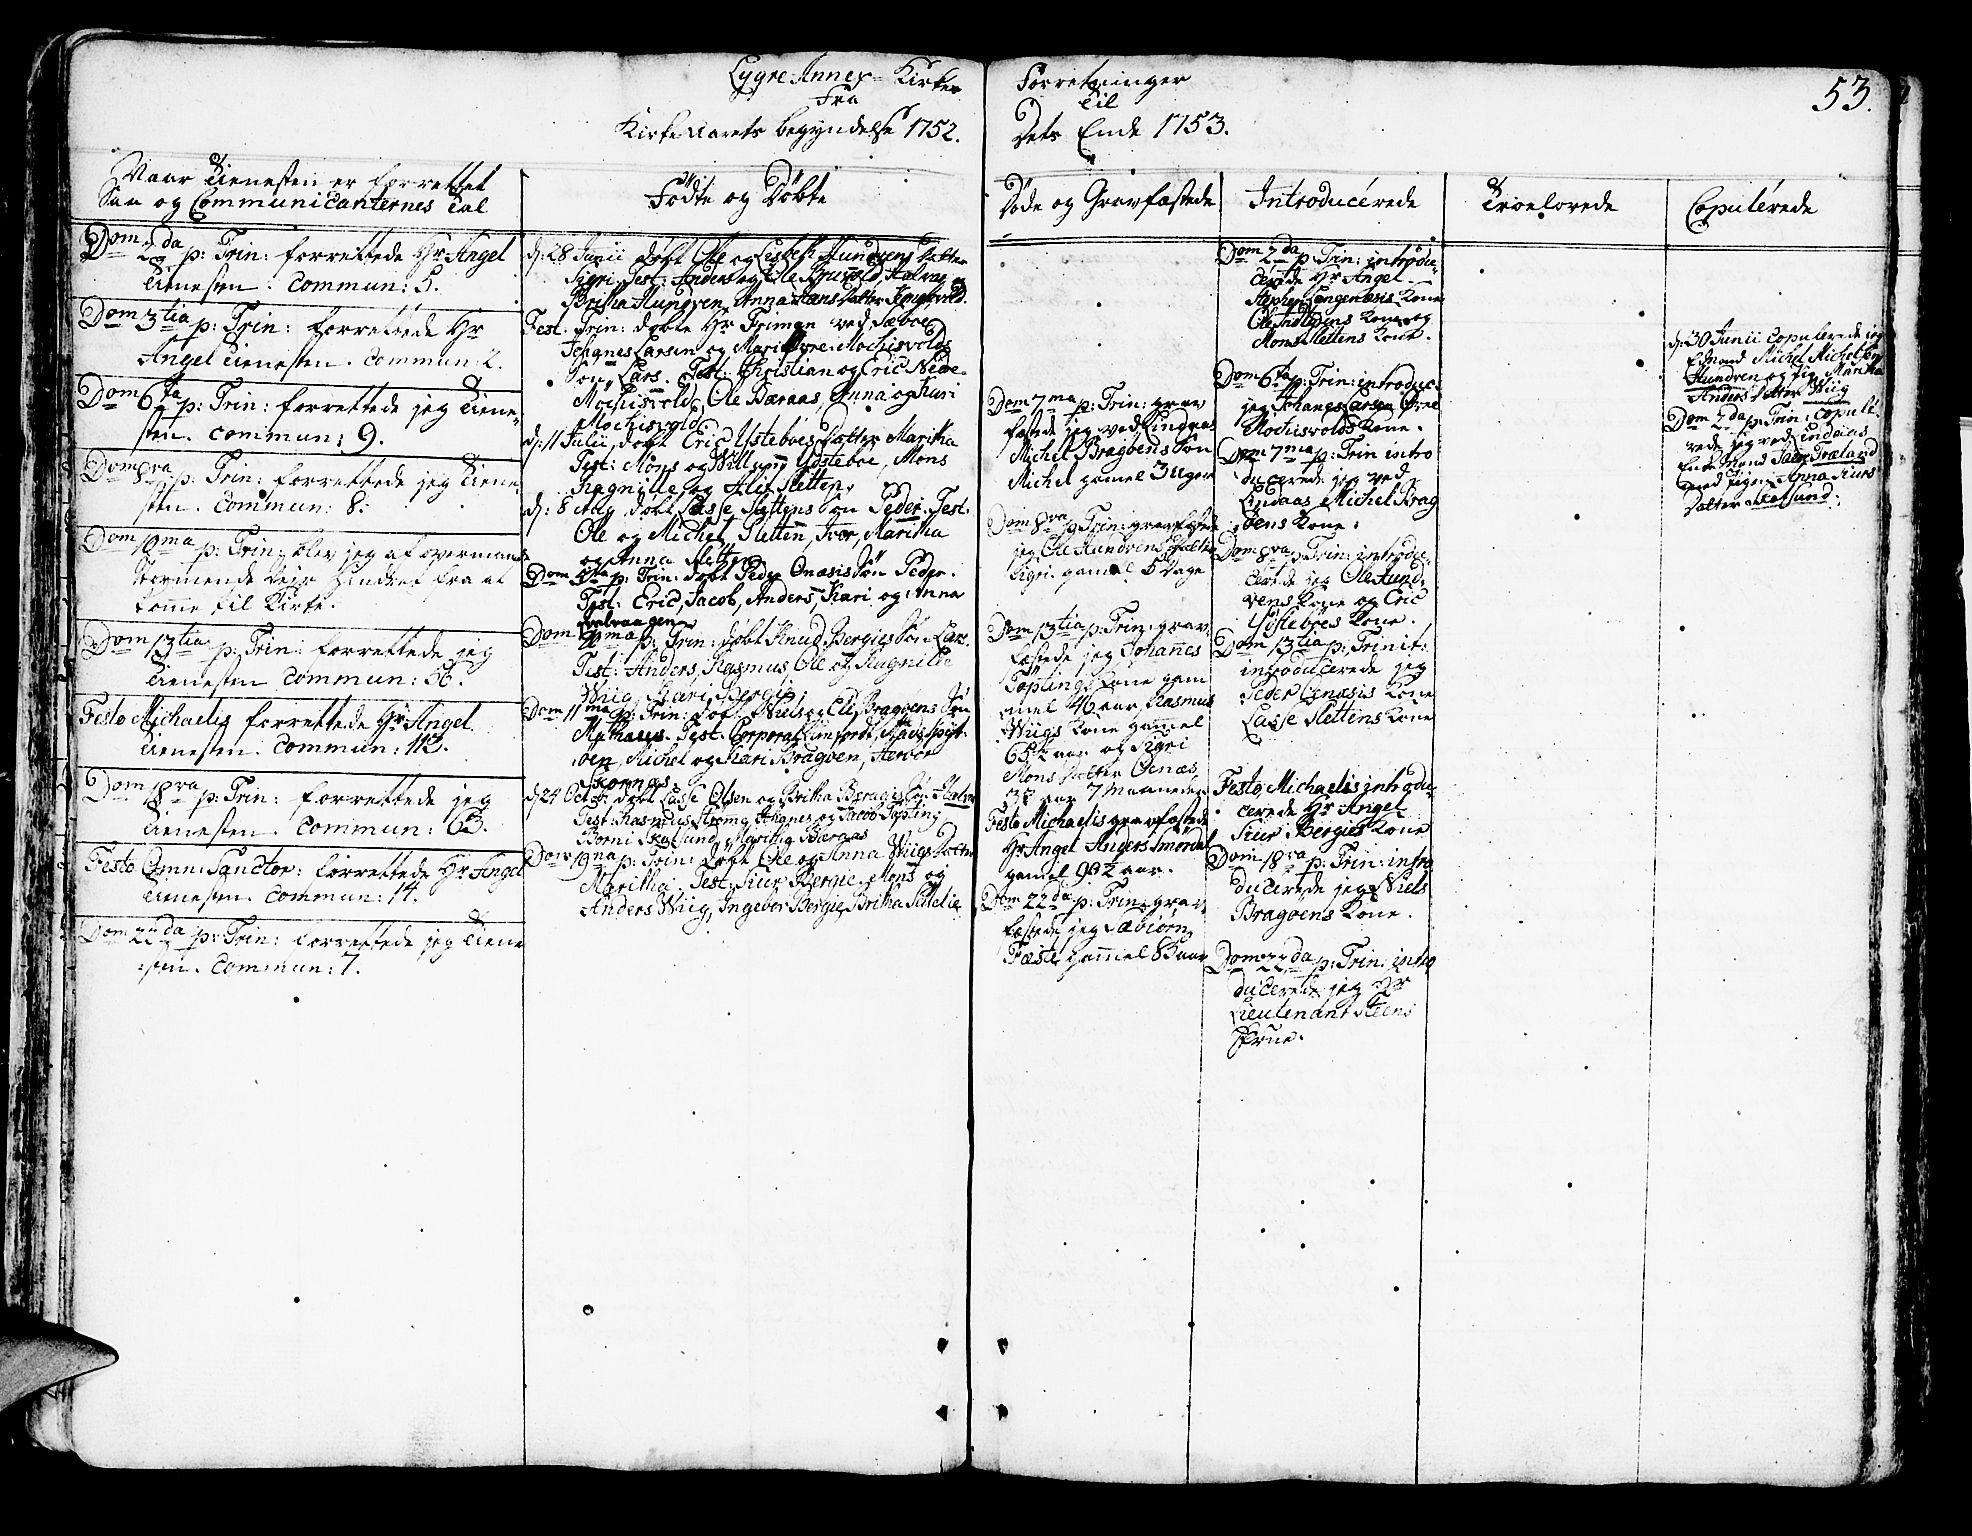 Lygre Annex-Kirkes Forretninger
Fra Til
Kirke-Aarets begyndelse 1752. Dets Ende 1753.
53.
Naar Tienesten er forrettet
Saa og Communicanternes Tal
Dom 2da p: Trin: forrettede Hr Angel
Tienesten. Commun: 5.
Dom 3tia p: Trin: forrettede Hr
Angel Tienesten. Commun: 2.
Dom 6ta p: Trin: forrettede jeg Tiene-
sten. Commun: 9.
Dom 8va p: Trin: forrettede jeg Tiene-
sten. Commun: 8.
Dom 10ma p: Trin: blev jeg af overmaade
stormende Veir hindret fra at
komme til Kirke.
Dom 13tia p: Trin: forrettede jeg
Tienesten Commun: 56.
Festo Michaelis forrettede Hr Angel
Tienesten. Commun: 112.
Dom 18va p: Trin: forrettede jeg
Tienesten. Commun: 63.
Festo Omn: Sanctor: forrettede Hr Angel
Tienesten. Commun: 14.
Dom 22da p: Trin: forrettede jeg Tiene
sten. Commun: 7.
Fødte og Døbte
d: 28 Junii døbt Ole og Lisbeth Hundvens Datter
Sigri, Test: Anders og Ole
Britha Hundven, Anna Hans Datter
Fest. Trin: døbte Hr Friman ved Sæboe
Johanes Larsen og Mari Øvre-Mochisvolds
Søn, Lars. Test: Christian og Eric Nedre
Mochisvold, Ole Bæraas, Anna og Kari
Mochisvold
d: 11 Julii, døbt Eric Ystebøes Datter Maritha
Test: Mons og Ystebøe, Mons
Ragnille og Sletten.
d: 8 Aug. døbt Lasse Slettens Søn Peder. Test.
Ole og Michel Sletten, Iver, Maritha
og Anna Sletten
Dom p: Trin: døbt Peder Onæsis Søn Peder.
Test: Eric, Jacob, Anders, Kari og Anna
Dom p: Trin: døbt Knud Bergies Søn Lars.
Test: Anders, Rasmus, Ole og Ragnille
Wiig, Kari Bergie
Dom 11ma p: Trin: døbt Niels og Bragøens Søn
Mathæus. Test: Corporal
øen, Michel og Kari Bragøen,
Skornæs
d: 24 Octobr: døbt Lasse Olsen og Britha Beraas Søn
Test: Rasmus Johanes og Jacob Topting
Borni Maritha Bæraas
Dom 19na p: Trin: døbt Ole og Anna Wiigs Datter
Maritha. Test. Siur Bergie, Mons og
Anders Wiig, Ingebor Bergie, Britha
Døde og Gravfæstede
Dom 7ma p: Trin: grav
fæstede jeg ved Lindaas
Michel Bragøens Søn
Michel gamel 3 Uger
Dom 8va p: Trin: gravfæstede
jeg Ole Hundvens Datter
Sigri gamel 5 Dage
Dom 13tia p: Trin: grav
fæstede jeg Johannes
Toptings Kone gam
mel 46 aar, Rasmus
Wiigs Kone gammel
65½ aar og Sigri
Mons Datter Onæs,
aar 7 Maaneder
Festo Michaelis gravfæstede
Hr Angel Anders
gamel 90½ aar.
Dom 22da p: Trin: grav
fæstede jeg Sæbiørn
Fæste gammel 83 aar
Introducérede
Dom 2da p: Trin: introdu-
cerede Hr Angel
Stephen Langenæsis Kone
Ole Kone og
Mons Slettens Kone.
Dom 6ta p: Trin: introduc:
jeg Johanes Larsen Øvre
Mochisvolds Kone.
Dom 7ma p: Trin intro
ducerede jeg ved
Lindaas Michel Brag
øens Kone.
Dom 8va p: Trin: introdu-
cerede jeg Ole Hund
vens Kone og Eric
Ystebøes Kone.
Dom 13tia p: Trinit:
introducerede jeg
Peder Onæsis Kone
Lasse Slettens Kone
Festo Michaelis introdu-
cerede Hr Angel
Siur Bergies Kone
Dom 18va p: Trin: intro
ducerede jeg Niels
Bragøens Kone.
Dom 22da p: Trin: intro
ducerede jeg
Lieutenant Steens
Frue.
Troelovede
Copulérede
d: 30 Junii Copulerede jeg
Michel Michelsen
Hundven og Pig. Maritha
Anders Datter Wiig
Dom 7da p: Trin: Copulé-
rede jeg ved Lindaas
Enke Mand
med Pigen Anna Siurs
Datter